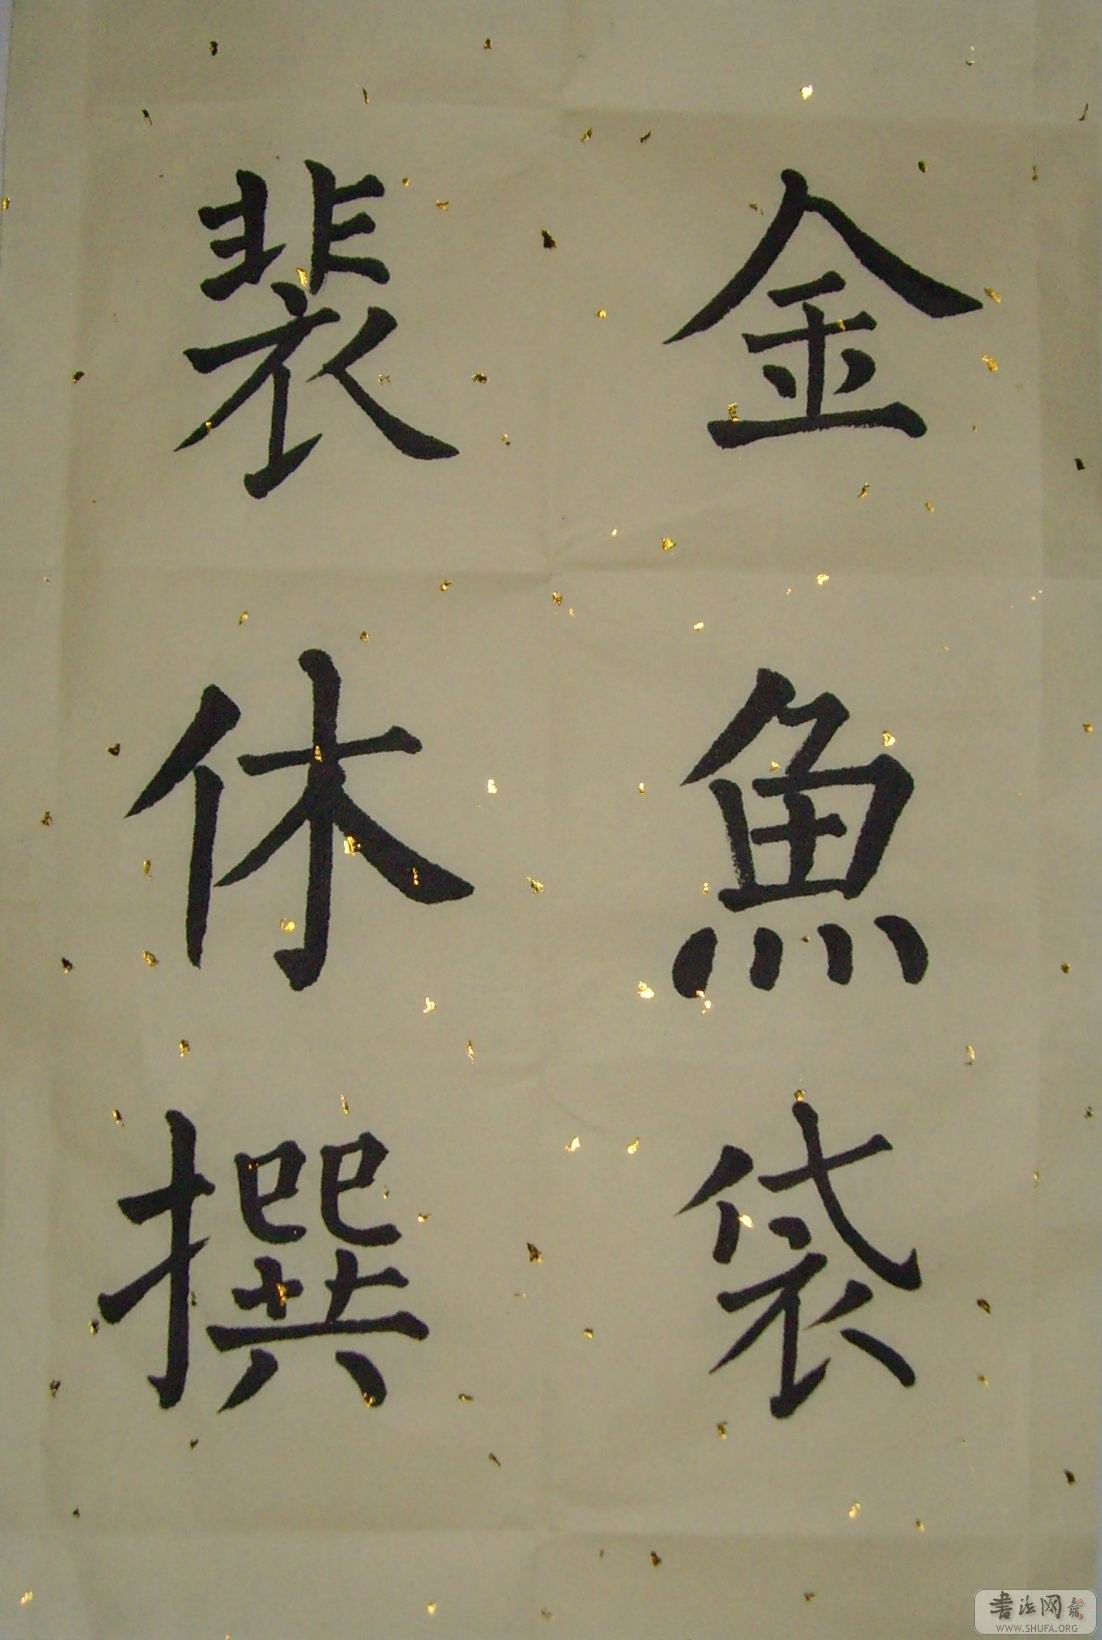 金魚袋
裴休撰
書法网
WWW.SHUFA.ORG